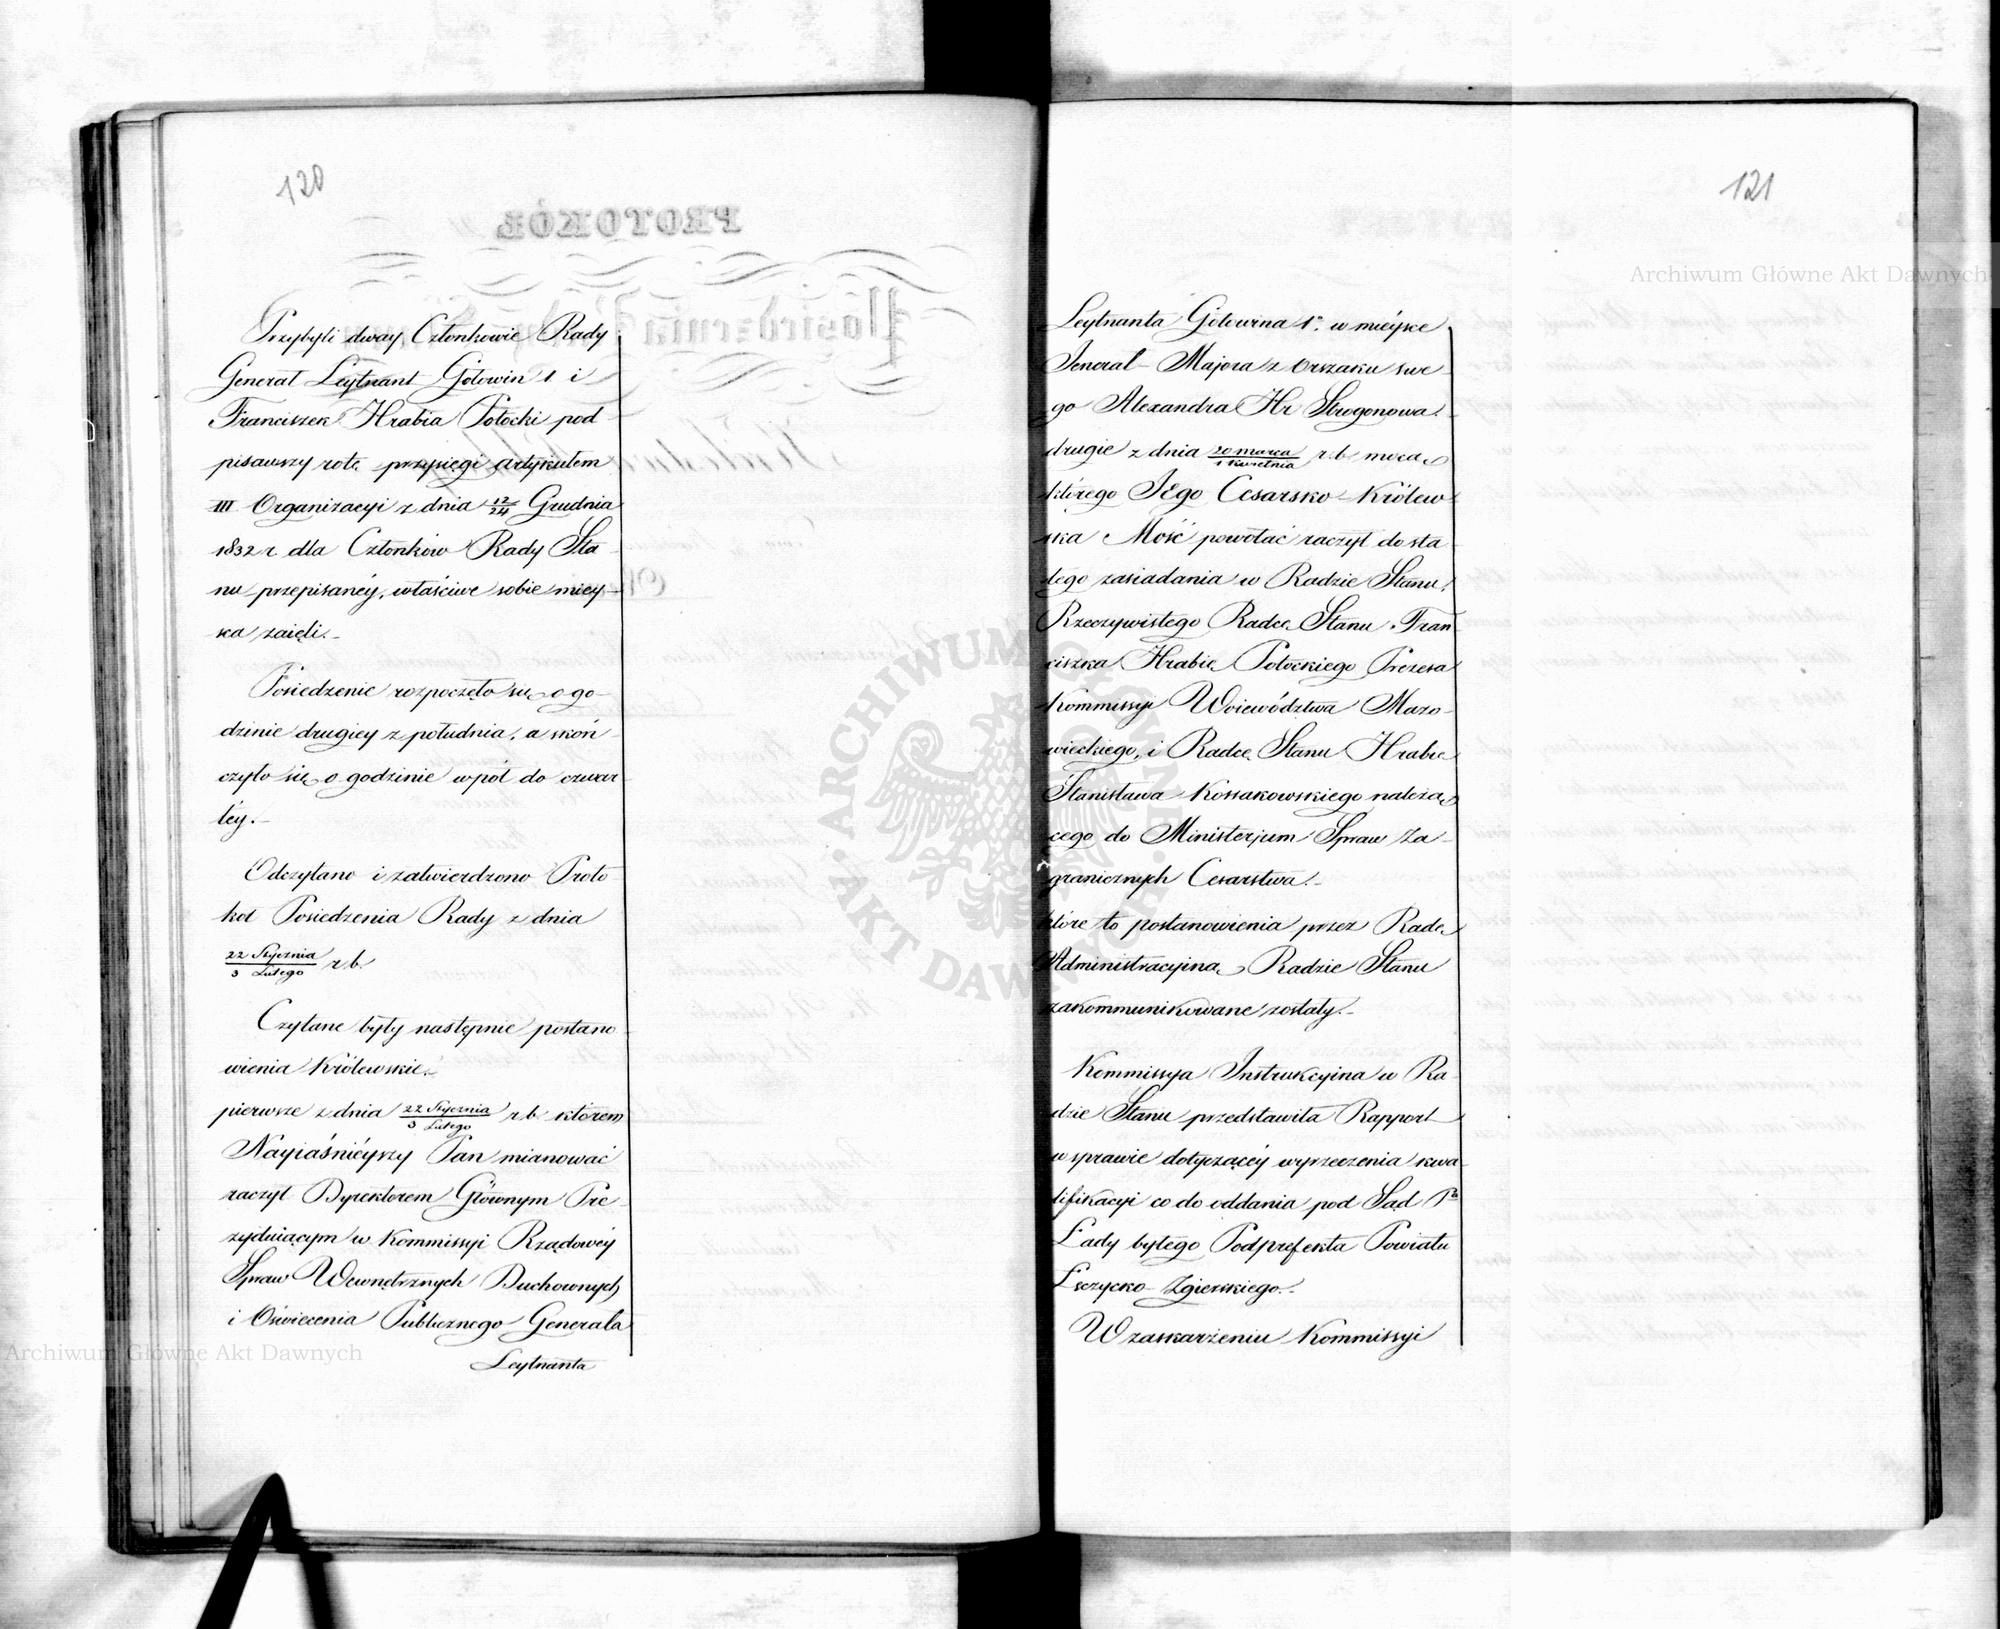 120
Przybyli dway Członkowie Rady
Generał Leytnant Gołowin 1 i
Franciszek Hrabia Potocki pod-
pisawszy rotę przysięgi artykułem
III Organizacyi z dnia 12/24 Grudnia
1832 r. dla Członków Rady Sta-
nu przepisanéy, właściwe sobie miey-
sca zaięli.-
Posiedzenie rozpoczęło się o go-
dzinie drugiey z południa, a skoń-
czyło się o godzinie wpół do czwar-
téy.-
Odczytano i zatwierdzono Proto-
kół Posiedzenia Rady z dnia
22 Stycznia/3 Lutego r.b.
Czytane były następnie postano-
wienia Królewskie.
pierwsze z dnia 22 Stycznia/3 Lutego r.b. którem
Nayiaśniéyszy Pan mianować
raczył Dyrektorem Głównym Pre-
zyduiącym w Kommissyi Rządowéy
Spraw Wewnętrznych Duchownych
i Oświecenia Publicznego Generała
Leytnanta
121
Leytnanta Gołowina 1° w mieysce
Jenerał-Majora z Orszaku swe-
go Alexandra Hr Strogonowa.
drugie z dnia 20 marca/1 Kwietnia r.b. mocą
którego Jego Cesarsko-Królew-
ska Mość powołać raczył do sta-
łego zasiadania w Radzie Stanu,
Rzeczywistego Radcę Stanu Fran-
ciszka Hrabię Potockiego Prezesa
Kommissyi Woiewództwa Mazo-
wieckiego, i Radcę Stanu Hrabię
Stanisława Kossakowskiego należą-
cego do Ministerjum Spraw Za-
granicznych Cesarstwa.-
które to postanowienia przez Radę
Administracyiną Radzie Stanu
zakommunikowane zostały.-
Kommissya Instrukcyina w Ra-
dzie Stanu przedstawiła Rapport
w sprawie dotyczącéy wyrzeczenia kwa-
lifikacyi co do oddania pod Sąd Pa
Lady byłego Podprefekta Powiatu
Łęczycko-Zgierskiego.-
W zaskarżeniu Kommissyi
Archiwum Główne Akt Dawnych
Archiwum Główne Akt Dawnych
ARCHIWUM GŁÓWNE AKT DAWNYCH